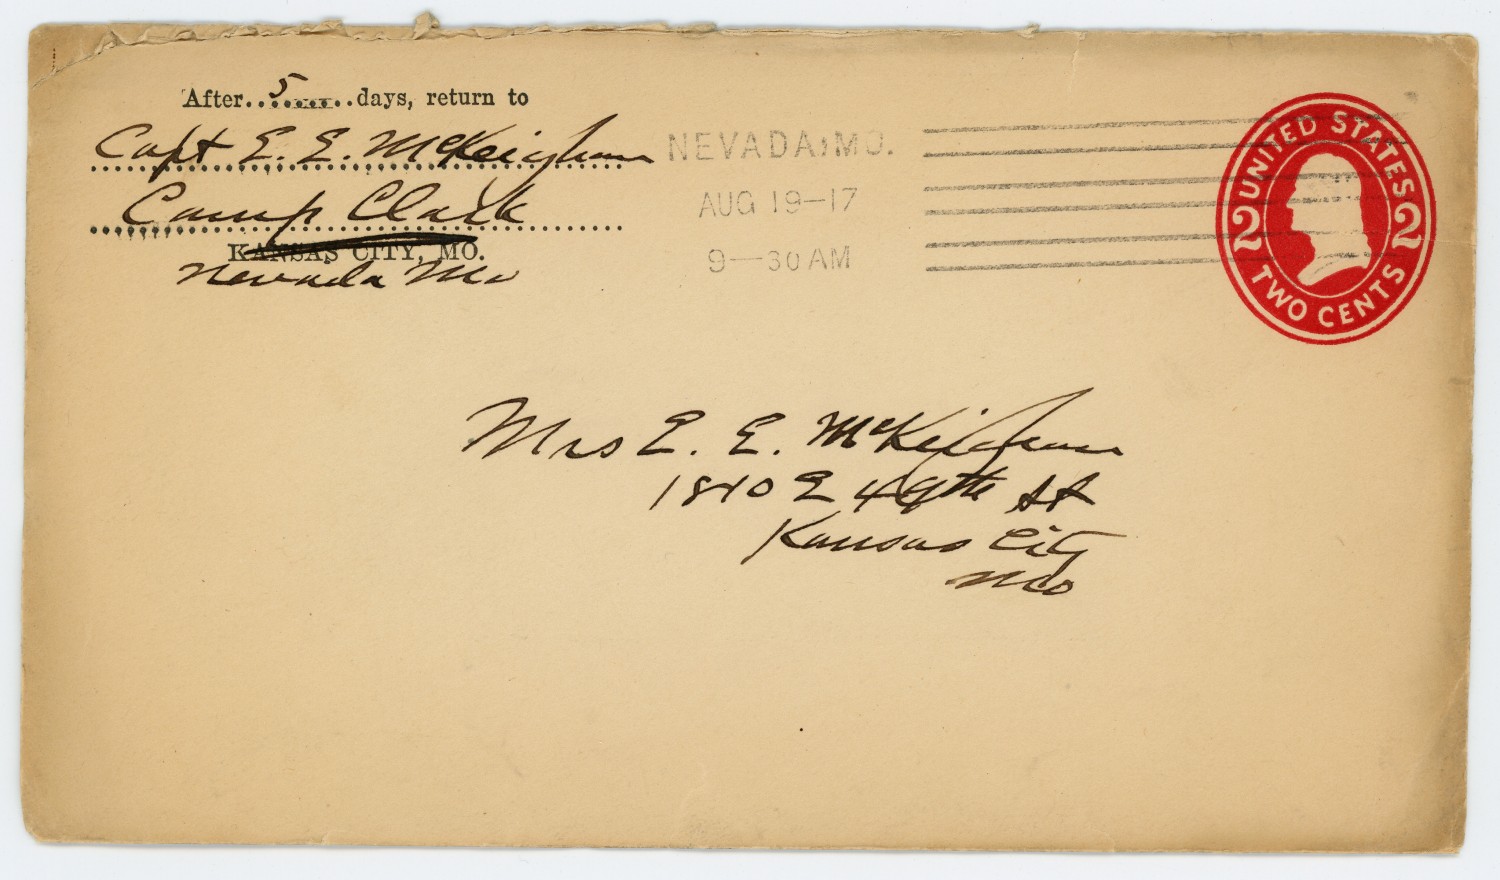 After..5......days, return to
Capt E. E. McKeighan
Camp Clark
KANSAS CITY, MO.
Nevada Mo
NEVADA, MO.
AUG 19-17
9-30 AM
UNITED STATES
2 2
TWO CENTS
Mrs E. E. McKeighan
1810 E 49th St
Kansas City
Mo